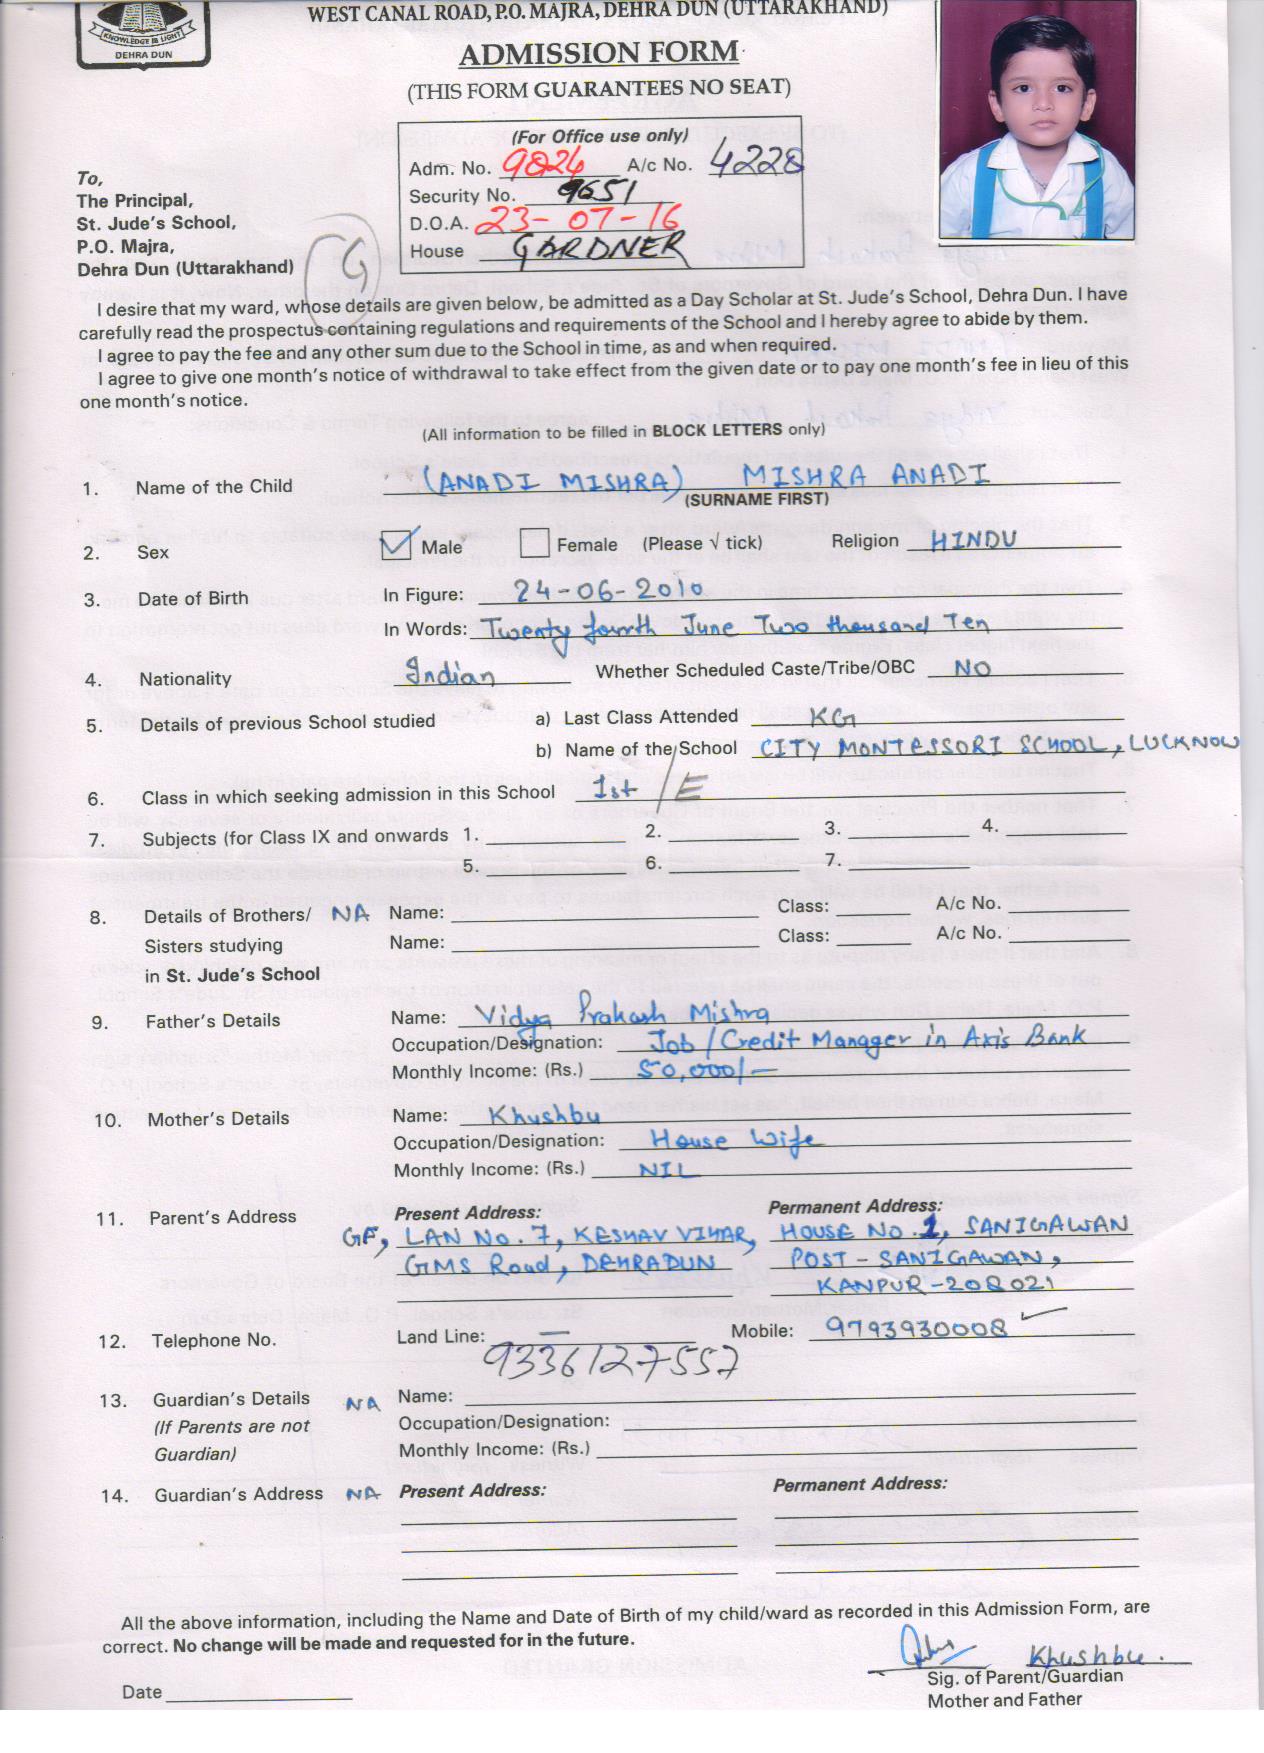 KNOWLEDGE IS LIGHT
DEHRA DUN
WEST CANAL ROAD, P.O. MAJRA, DEHRA DUN (UTTARAKHAND)
ADMISSION FORM
(THIS FORM GUARANTEES NO SEAT)
(For Office use only)
Adm. No. 9824 A/c No. 4228
Security No. 9651
D.O.A. 23-07-16
House GARDNER
To,
The Principal,
St. Jude's School,
P.O. Majra,
Dehra Dun (Uttarakhand)
G
I desire that my ward, whose details are given below, be admitted as a Day Scholar at St. Jude's School, Dehra Dun. I have
carefully read the prospectus containing regulations and requirements of the School and I hereby agree to abide by them.
I agree to pay the fee and any other sum due to the School in time, as and when required.
I agree to give one month's notice of withdrawal to take effect from the given date or to pay one month's fee in lieu of this
one month's notice.
(All information to be filled in BLOCK LETTERS only)
1. Name of the Child (ANADI MISHRA) MISHRA ANADI
(SURNAME FIRST)
2. Sex Male Female (Please √ tick) Religion HINDU
3. Date of Birth In Figure: 24-06-2010
In Words: Twenty fourth June Two thousand Ten
4. Nationality Indian Whether Scheduled Caste/Tribe/OBC NO
5. Details of previous School studied a) Last Class Attended KG
b) Name of the School CITY MONTESSORI SCHOOL, LUCKNOW
6. Class in which seeking admission in this School 1st / E
7. Subjects (for Class IX and onwards 1. 2. 3. 4.
5. 6. 7.
8. Details of Brothers/ NA Name: Class: A/c No.
Sisters studying Name: Class: A/c No.
in St. Jude's School
9. Father's Details Name: Vidya Prakash Mishra
Occupation/Designation: Job / Credit Manager in Axis Bank
Monthly Income: (Rs.) 50,000/-
10. Mother's Details Name: Khushbu
Occupation/Designation: House Wife
Monthly Income: (Rs.) NIL
11. Parent's Address Present Address: Permanent Address:
GF, LAN No. 7, KESHAV VIHAR, HOUSE NO. 1, SANIGAWAN
GMS Road, DEHRADUN POST - SANIGAWAN,
KANPUR-208021
12. Telephone No. Land Line: — Mobile: 9793930008
9336127557
13. Guardian's Details NA Name:
(If Parents are not Occupation/Designation:
Guardian) Monthly Income: (Rs.)
14. Guardian's Address NA Present Address: Permanent Address:
All the above information, including the Name and Date of Birth of my child/ward as recorded in this Admission Form, are
correct. No change will be made and requested for in the future.
Khushbu.
Sig. of Parent/Guardian
Date Mother and Father